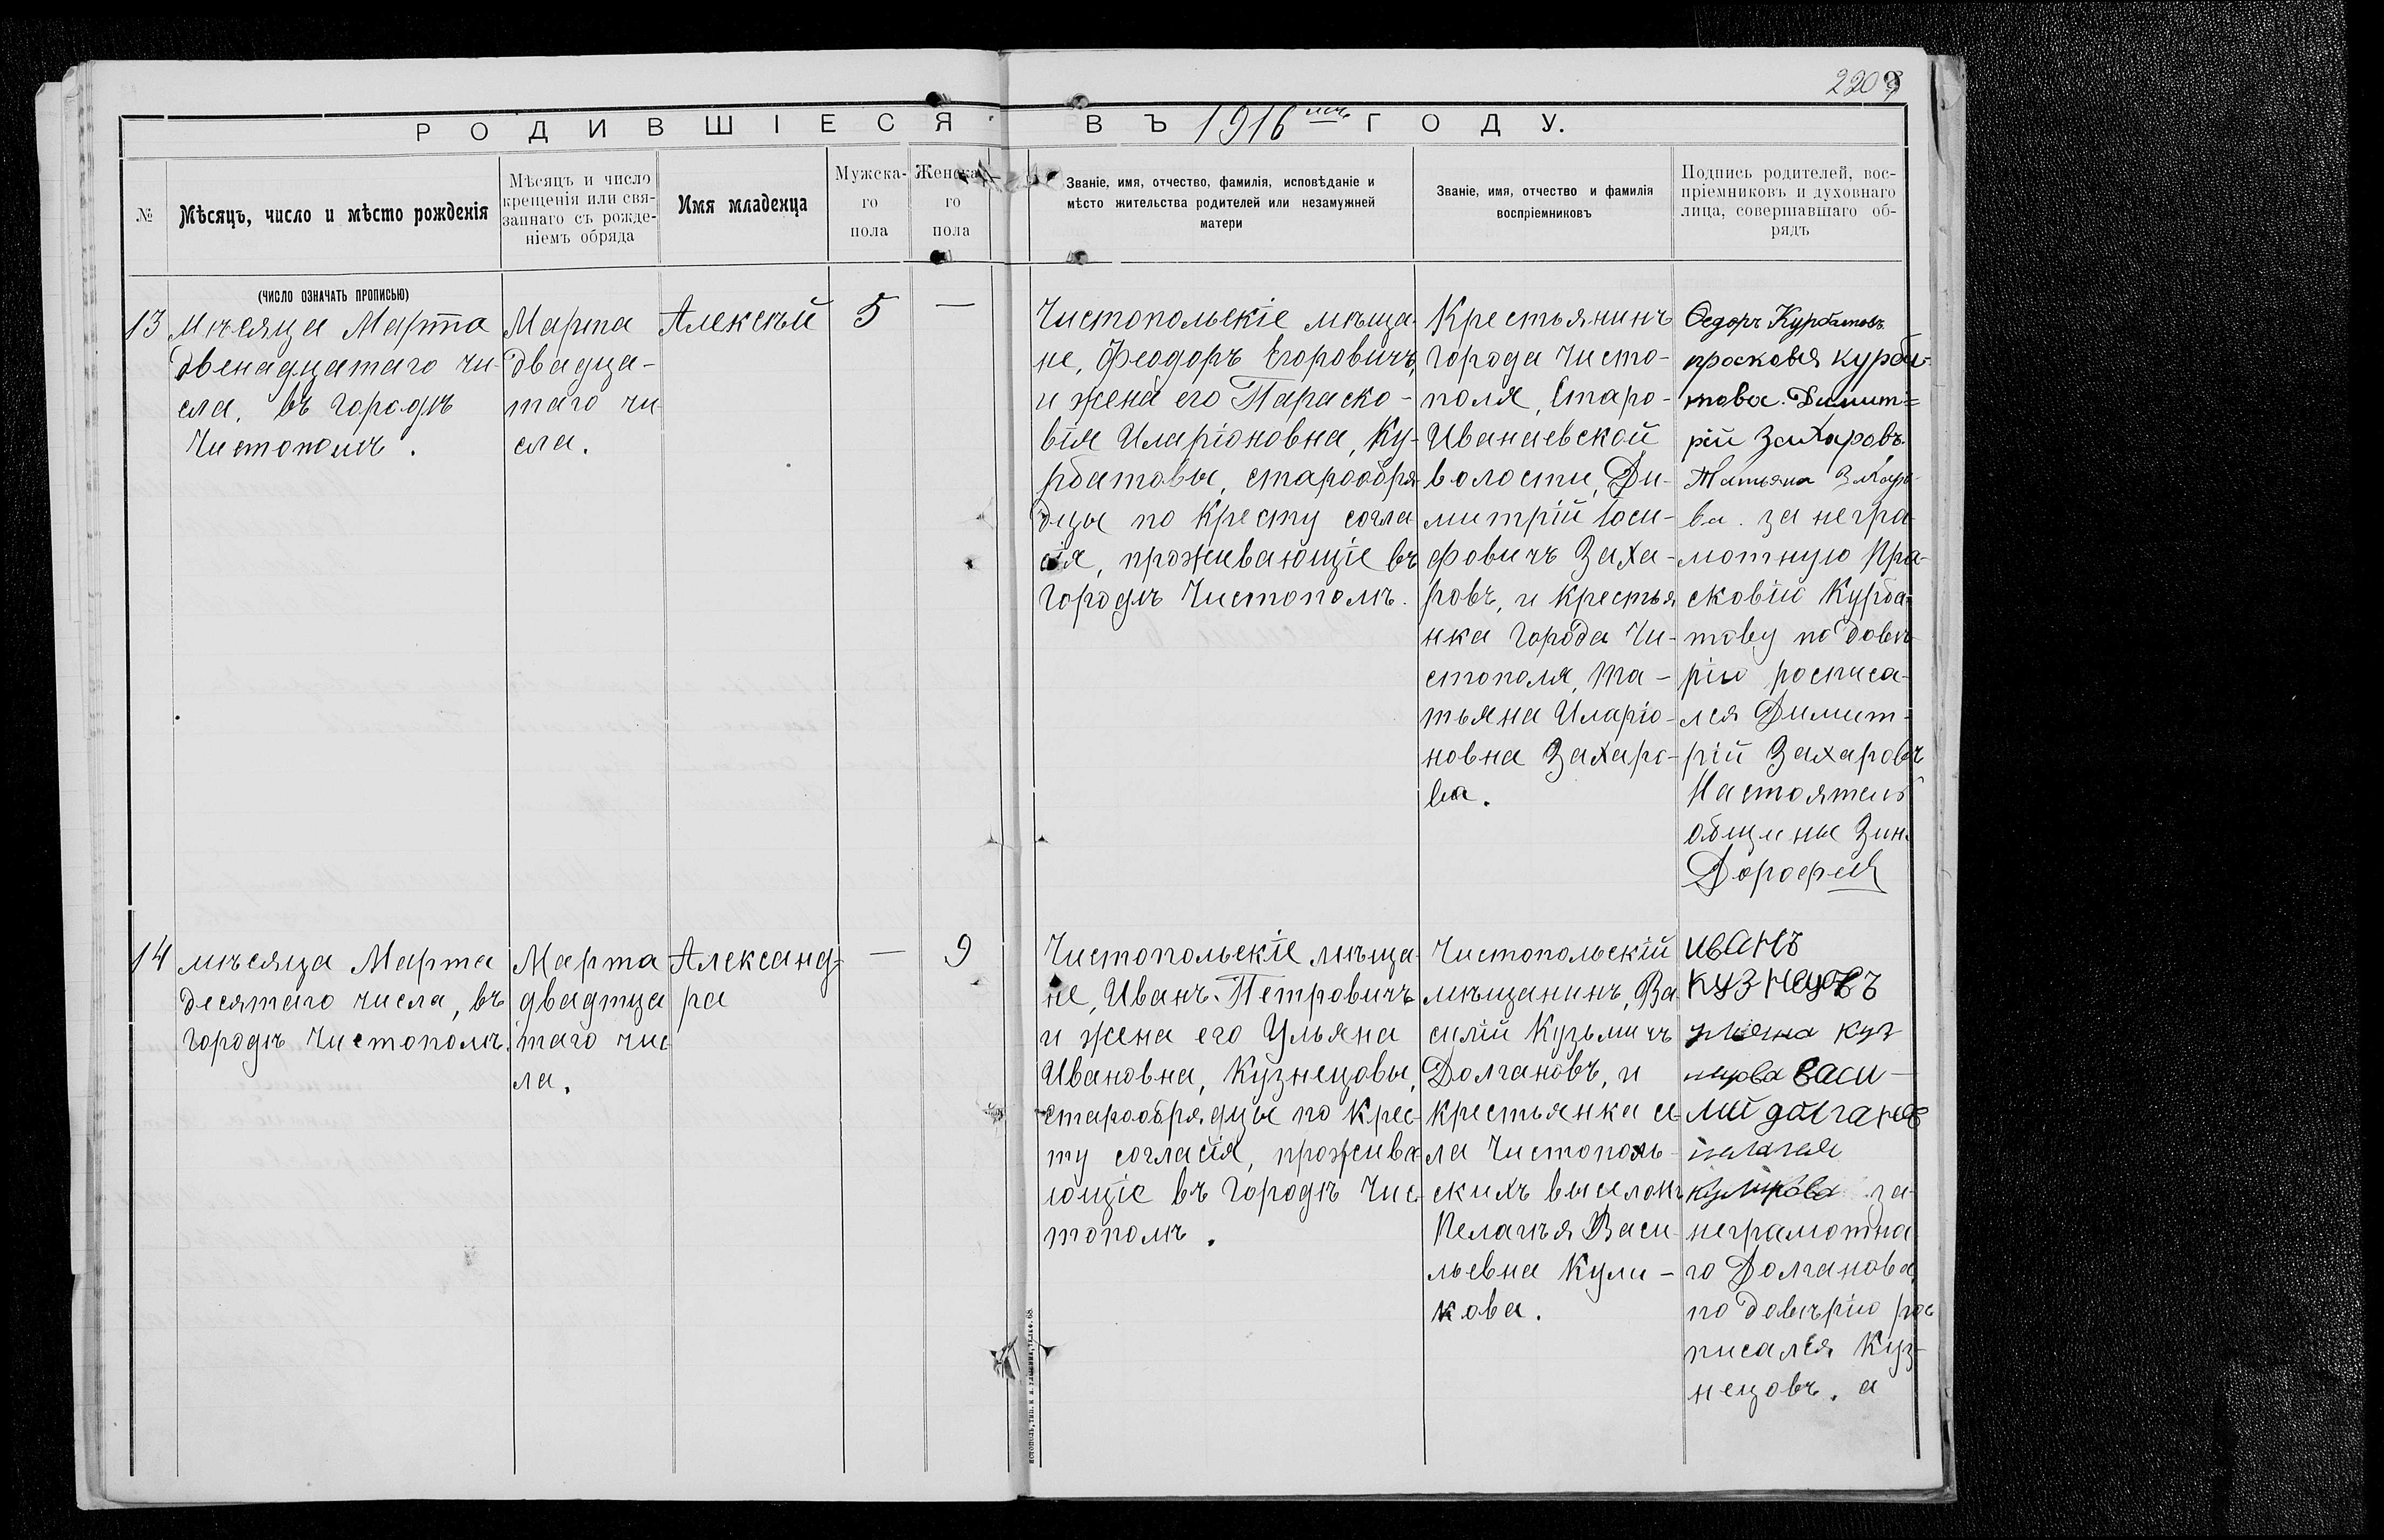 2209
РОДИВШІЕСЯ ВЪ 1916 мъ ГОДУ.
№
Мѣсяцъ, число и мѣсто рожденія
Мѣсяцъ и число
крещенія или свя-
заннаго съ рожде-
ніемъ обряда
Имя младенца
Мужска-
го
пола
Женска-
го
пола
Званіе, имя, отчество, фамилія, исповѣданіе и
мѣсто жительства родителей или незамужней
матери
Званіе, имя, отчество и фамилія
воспріемниковъ
Подпись родителей, вос-
пріемниковъ и духовнаго
лица, совершавшаго об-
рядъ
(ЧИСЛО ОЗНАЧАТЬ ПРОПИСЬЮ)
13
мѣсяца Марта
двенадцатаго чи-
сла, въ городѣ
Чистополѣ.
Марта
двадца-
таго чи
сла.
Алексѣй
5
—
Чистопольскіе мѣща-
не, Феодоръ Егоровичъ,
и жена его Параско-
вія Иларіоновна, Ку-
рбатовы, старообря-
дцы по Кресту согла
сія, проживающіе въ
городѣ Чистополѣ.
Крестьянинъ
города Чисто-
поля, Старо-
Иванаевской
волости, Ди-
митрій Іоси-
фовичъ Заха-
ровъ, и крестья
нка города Чи-
стополя, Та-
тьяна Иларіо-
новна Захаро-
ва.
Ѳедоръ Курбатовъ
просковья курба-
това. Димит=
рій Захаровъ
Татьяна Захаро
ва. за негра
мотную Пра-
сковію Курба=
тову по довѣ
рію росписа-
лся Димит-
рій Захаровъ
Настоятель
общины Зин.
Дорофей
14
мѣсяца Марта
десятаго числа, въ
городѣ Чистополѣ.
Марта
двадтца
таго чис
ла.
Александ-
ра
—
9
Чистопольскіе мѣща
не, Иванъ Петровичъ
и жена его Ульяна
Ивановна, Кузнецовы,
старообрядцы по Крес-
ту согласія, прожива
ющіе въ городѣ Чис
тополѣ.
Чистопольскій
мѣщанинъ, Ва
силій Кузьмичъ
Долгановъ, и
крестьянка се-
ла Чистополь-
скихъ выселокъ
Пелагѣя Васи-
льевна Кули-
кова.
иванъ
кузнецовъ
ульяна куз
нецова васи-
лий долганов
пелагея
куликова за
неграмотна
го Долганова
по довѣрію рос
писался Куз-
нецовъ. а